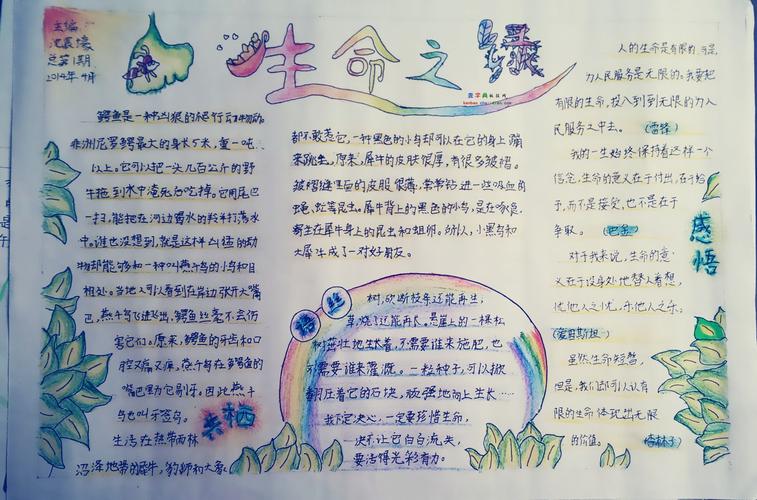 主编:
总第1期
2014年4月
生命之
鳄鱼是一种凶狠的爬行动物。
非洲尼罗鳄最大的身长5米,重一吨
以上。它可以把一头几百公斤的野
牛拖到水中淹死后吃掉。它用尾巴
一扫,能把在河边喝水的羚羊打落水
中。谁也没想到,就是这样凶猛的动
物却能够和一种叫燕千鸟的小鸟和目
相处。当地人可以看到在岸边张开大嘴
巴,燕千鸟飞进飞出,鳄鱼丝毫不会伤
害它们。原来,鳄鱼的牙齿和口
腔又痛又痒,燕千鸟在
嘴巴里为它剔牙。因此燕千
鸟也叫牙签鸟。
共栖
生活在热带雨林
沼泽地带的犀牛,豹狮和大象
都不敢惹它,一种黑色的小鸟却可以在它的身上蹦
来跳去。原来,犀牛的皮肤很厚,有很多皱褶。
皱褶缝里面的皮肤很薄,常常钻进一些吸血的
蝇,虻等昆虫。犀牛背上的黑色的小鸟,是在啄食
寄生在犀牛身上的昆虫和蛆卵。所以,小黑鸟和
大犀牛成了一对好朋友。
树,砍断枝条还能再生,
草,烧了还能再长,悬崖上的一棵松
树茁壮地生长着,不需要谁来施肥,也
不需要谁来灌溉。一粒种子,可以掀
翻压着它的石块,顽强地向上生长……
我下定决心,一定要珍惜生命,
决不让它白白流失,
要活得光彩有力。
人的生命是有限的,可是,
为人民服务是无限的。我要把
有限的生命,投入到到无限的为人
民服务之中去。(雷锋)
我的一生始终保持着这样一个
信念,生命的意义在于付出,在于给
予,而不是接受,也不是在于
争取。(巴金)
感悟
对于我来说,生命的意
义在于设身处地替人着想,
忧他人之忧,乐他人之乐。
(爱因斯坦)
虽然生命短暂,
但是,我们却可以让有
限的生命体现出无限
的价值。(杏林子)